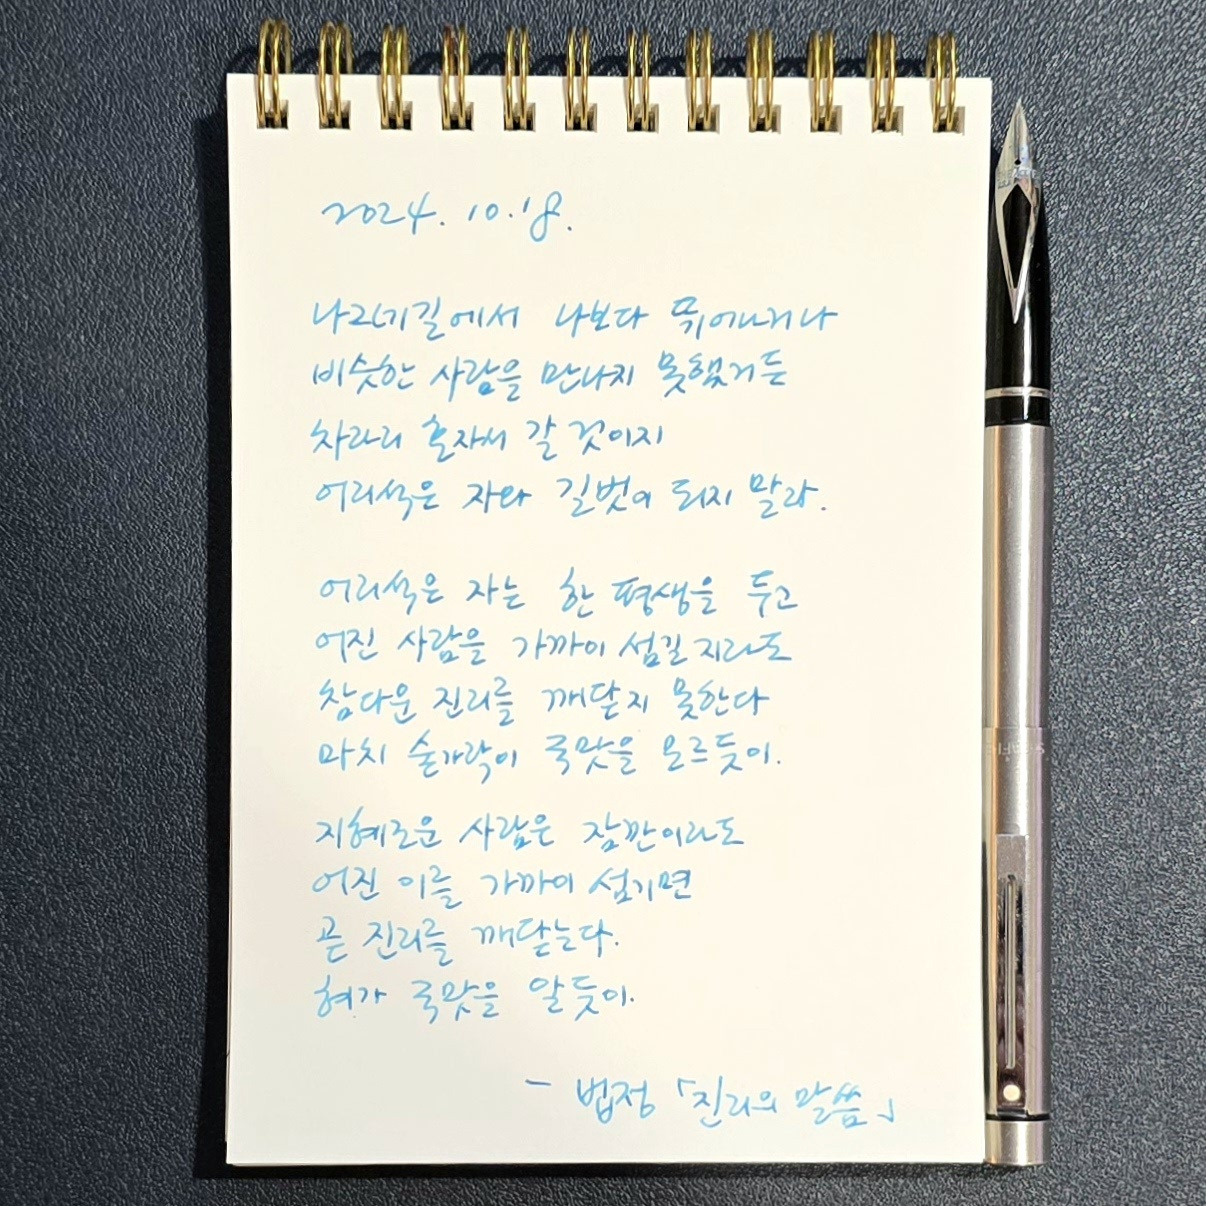 2024. 10. 18.
나그네길에서 나보다 뛰어나거나
비슷한 사람을 만나지 못했거든
차라리 혼자서 갈 것이지
어리석은 자와 길벗이 되지 말라.
어리석은 자는 한 평생을 두고
어진 사람을 가까이 섬길지라도
참다운 진리를 깨닫지 못한다
마치 숟가락이 국맛을 모르듯이.
지혜로운 사람은 잠깐이라도
어진 이를 가까이 섬기면
곧 진리를 깨닫는다.
혀가 국맛을 알듯이.
- 법정 「진리의 말씀」